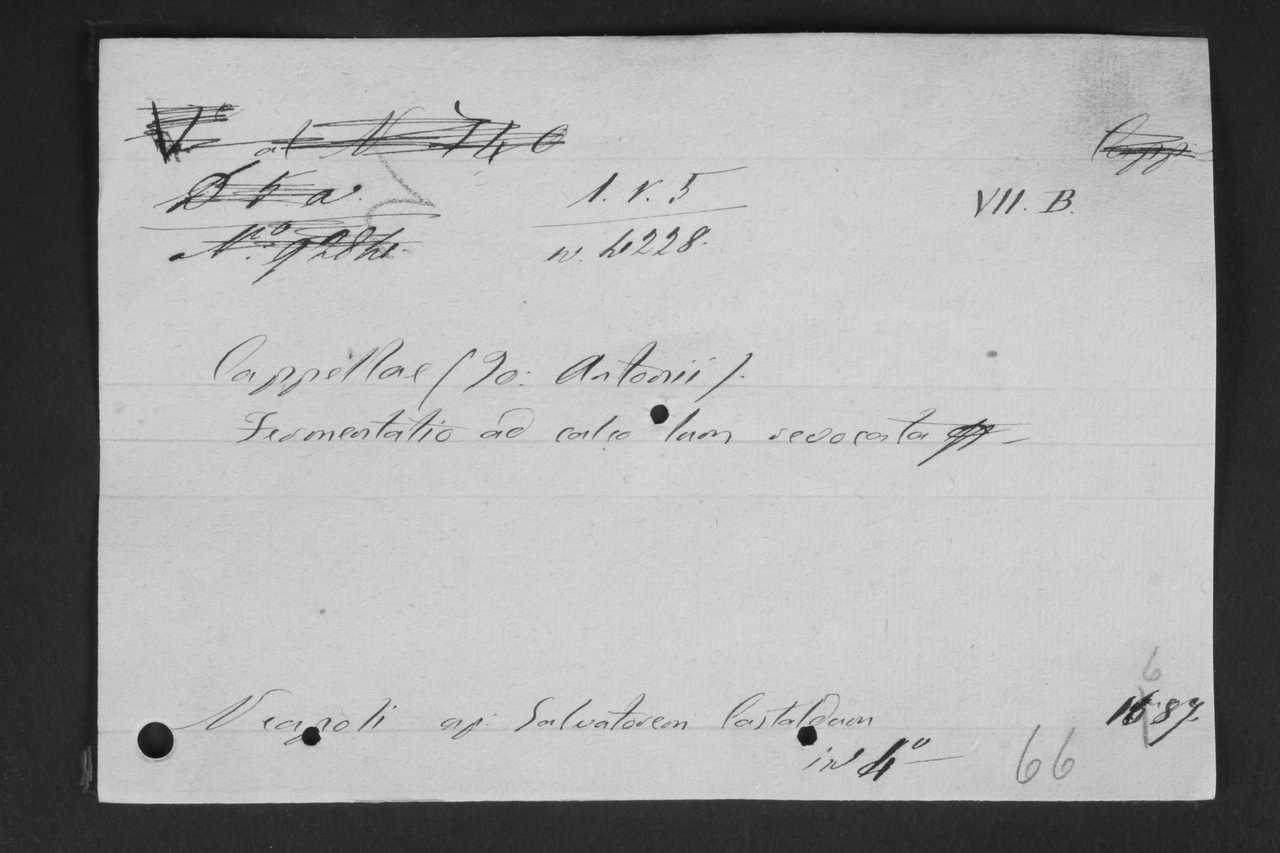 al N 740
D V a.
N.ro 9284.
1. V. 5
n. 4228.
VII. B.
Cappellae (Jo: Antonii).
Fermentatio ad calculum revocata
Neapoli ap: Salvatorem Castaldum 1687.
in 4º
66
6